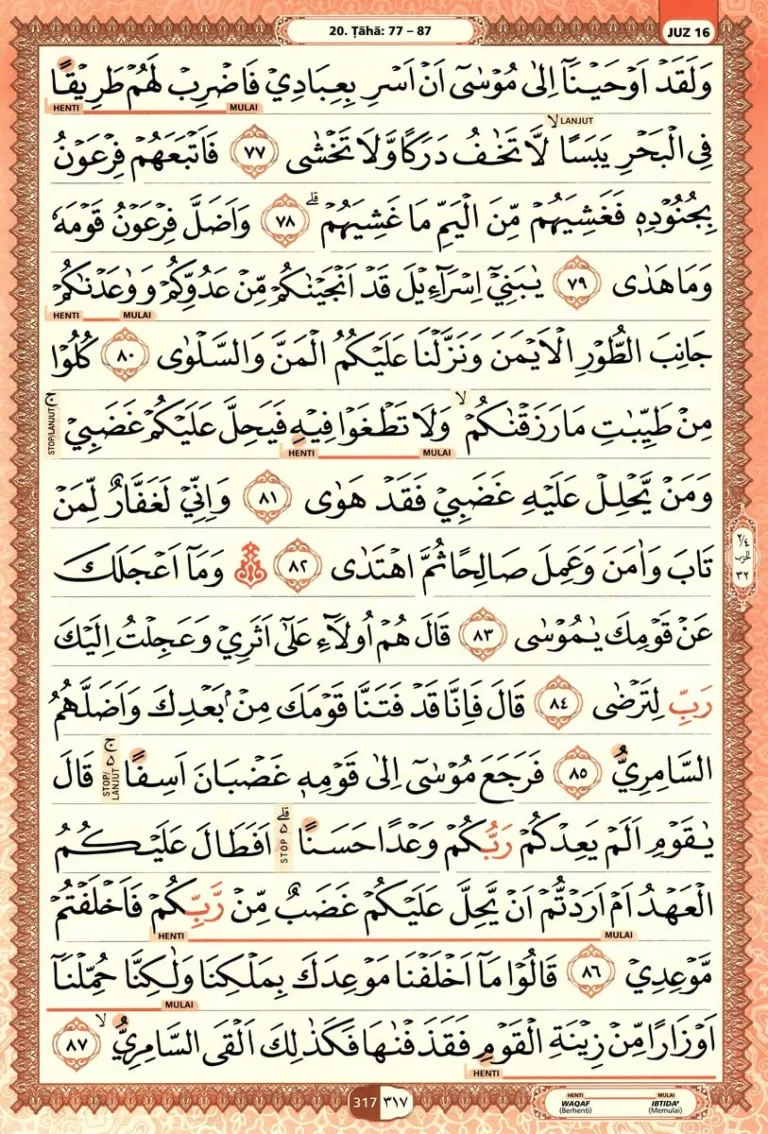 20. Ṭāhā: 77 – 87
JUZ 16
وَلَقَدْ اَوْحَيْنَآ اِلٰى مُوْسٰىٓ اَنْ اَسْرِ بِعِبَادِيْ فَاضْرِبْ لَهُمْ طَرِيْقًا
HENTI MULAI
LANJUT
فِى الْبَحْرِ يَبَسًاۙ لَّا تَخٰفُ دَرَكًا وَّلَا تَخْشٰى ٧٧ فَاَتْبَعَهُمْ فِرْعَوْنُ
بِجُنُوْدِهٖ فَغَشِيَهُمْ مِّنَ الْيَمِّ مَا غَشِيَهُمْ ۗ ٧٨ وَاَضَلَّ فِرْعَوْنُ قَوْمَهٗ
وَمَا هَدٰى ٧٩ يٰبَنِيْٓ اِسْرَاۤءِيْلَ قَدْ اَنْجَيْنٰكُمْ مِّنْ عَدُوِّكُمْ وَوٰعَدْنٰكُمْ
HENTI MULAI
جَانِبَ الطُّوْرِ الْاَيْمَنَ وَنَزَّلْنَا عَلَيْكُمُ الْمَنَّ وَالسَّلْوٰى ٨٠ كُلُوْا
مِنْ طَيِّبٰتِ مَا رَزَقْنٰكُمْۙ وَلَا تَطْغَوْا فِيْهِ فَيَحِلَّ عَلَيْكُمْ غَضَبِيْۚ
STOP/LANJUT
HENTI MULAI
وَمَنْ يَّحْلِلْ عَلَيْهِ غَضَبِيْ فَقَدْ هَوٰى ٨١ وَاِنِّيْ لَغَفَّارٌ لِّمَنْ
تَابَ وَاٰمَنَ وَعَمِلَ صَالِحًا ثُمَّ اهْتَدٰى ٨٢ وَمَآ اَعْجَلَكَ
٢/٤
الحزب
٣٢
عَنْ قَوْمِكَ يٰمُوْسٰى ٨٣ قَالَ هُمْ اُولَاۤءِ عَلٰٓى اَثَرِيْ وَعَجِلْتُ اِلَيْكَ
رَبِّ لِتَرْضٰى ٨٤ قَالَ فَاِنَّا قَدْ فَتَنَّا قَوْمَكَ مِنْۢ بَعْدِكَ وَاَضَلَّهُمُ
السَّامِرِيُّ ٨٥ فَرَجَعَ مُوْسٰىٓ اِلٰى قَوْمِهٖ غَضْبَانَ اَسِفًا ەۚ قَالَ
STOP/LANJUT
يٰقَوْمِ اَلَمْ يَعِدْكُمْ رَبُّكُمْ وَعْدًا حَسَنًا ەۗ اَفَطَالَ عَلَيْكُمُ
STOP
الْعَهْدُ اَمْ اَرَدْتُّمْ اَنْ يَّحِلَّ عَلَيْكُمْ غَضَبٌ مِّنْ رَّبِّكُمْ فَاَخْلَفْتُمْ
HENTI MULAI
مَّوْعِدِيْ ٨٦ قَالُوْا مَآ اَخْلَفْنَا مَوْعِدَكَ بِمَلْكِنَا وَلٰكِنَّا حُمِّلْنَآ
MULAI
اَوْزَارًا مِّنْ زِيْنَةِ الْقَوْمِ فَقَذَفْنٰهَا فَكَذٰلِكَ اَلْقَى السَّامِرِيُّ ۙ ٨٧
HENTI
317 ٣١٧
HENTI MULAI
WAQAF IBTIDA'
(Berhenti) (Memulai)